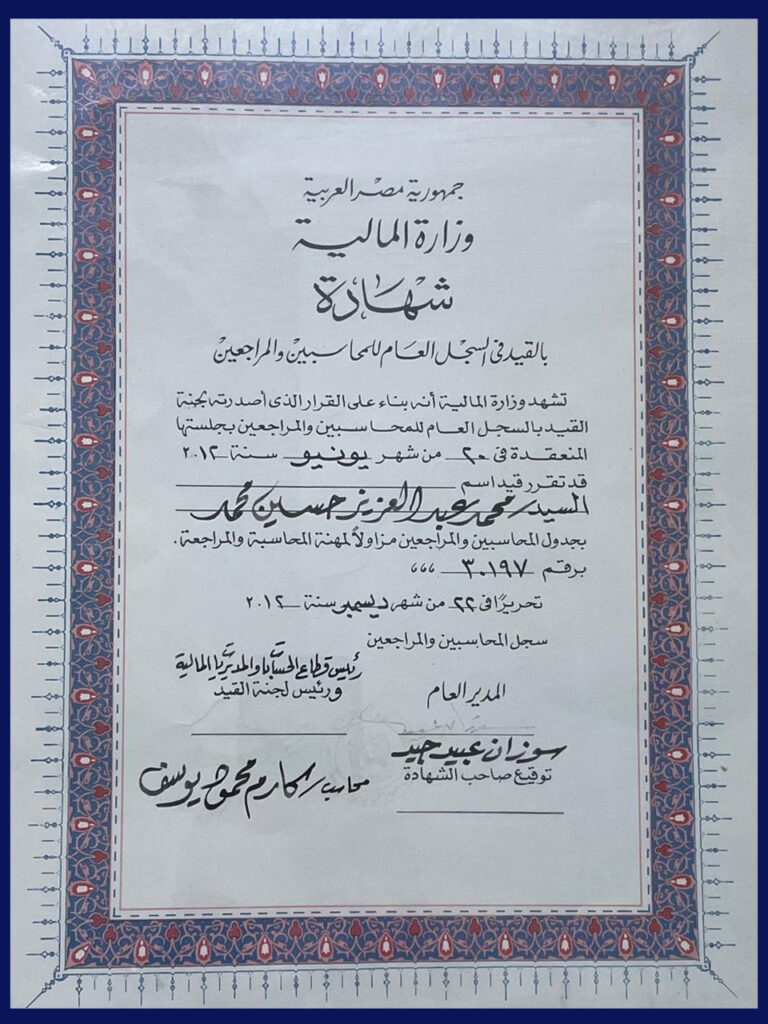 جمهورية مصر العربية
وزارة المالية
شهادة
بالقيد فى السجل العام للمحاسبين والمراجعين
تشهد وزارة المالية أنه بناء على القرار الذى أصدرته لجنة
القيد بالسجل العام للمحاسبين والمراجعين بجلستها
المنعقدة فى ٢٠ من شهر يونيو سنة ٢٠١٢
قد تقرر قيد اسم
السيد/ محمد عبد العزيز حسين محمد
بجدول المحاسبين والمراجعين مزاولاً لمهنة المحاسبة والمراجعة.
برقم ٣٠١٩٧ ،،،
تحريرًا فى ٢٢ من شهر ديسمبر سنة ٢٠١٢
سجل المحاسبين والمراجعين
المدير العام
رئيس قطاع الحسابات والمديريات المالية
ورئيس لجنة القيد
سوزان عبيد
توقيع صاحب الشهادة
محاسب/ مكارم محمود يوسف